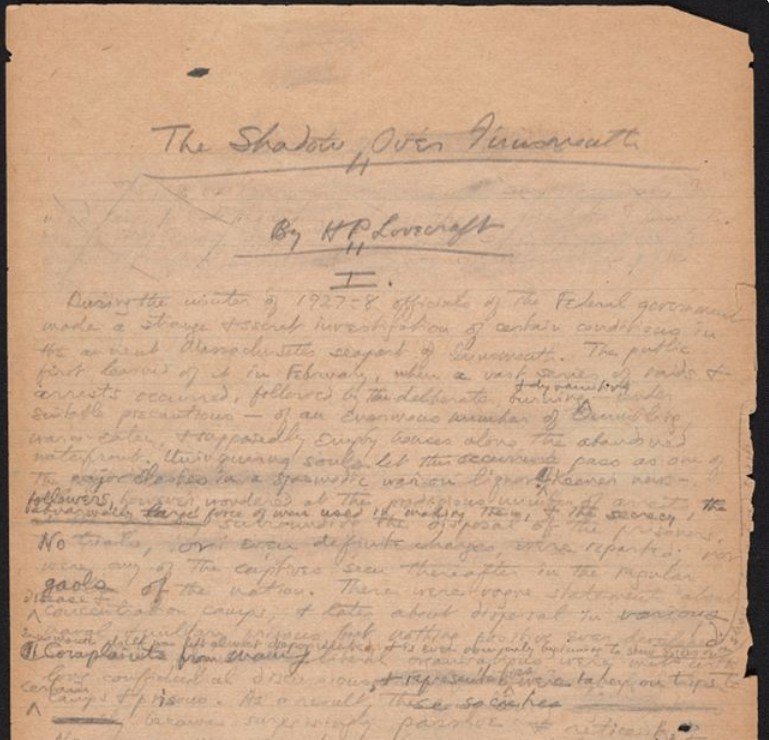 The Shadow Over Innsmouth
By H P Lovecraft
I.
During the winter of 1927-8 officials of the Federal government
made a strange & secret investigation of certain conditions in
the ancient Massachusetts seaport of Innsmouth. The public
first learned of it in February, when a vast series of raids &
arrests occurred, followed by the deliberate burning & dynamiting under
suitable precautions — of an enormous number of crumbling,
worm-eaten, & supposedly empty houses along the abandoned
waterfront. Uninquiring souls let this occurrence pass as one of
the major clashes in a spasmodic war on liquor. ¶ Keener news-
followers, however, wondered at the prodigious number of arrests, the
abnormally large force of men used in making them, & the secrecy
surrounding the disposal of the prisoners.
No trials, or even definite charges, were reported; nor
were any of the captives seen thereafter in the regular
gaols of the nation. There were vague statements about
disease &
concentration camps, & later about disposal in various
but nothing positive ever developed.
¶ Complaints from many liberal organisations were met with
long confidential discussions, & representatives were taken on trips to
certain
camps & prisons. As a result, these societies
became surprisingly passive & reticent.